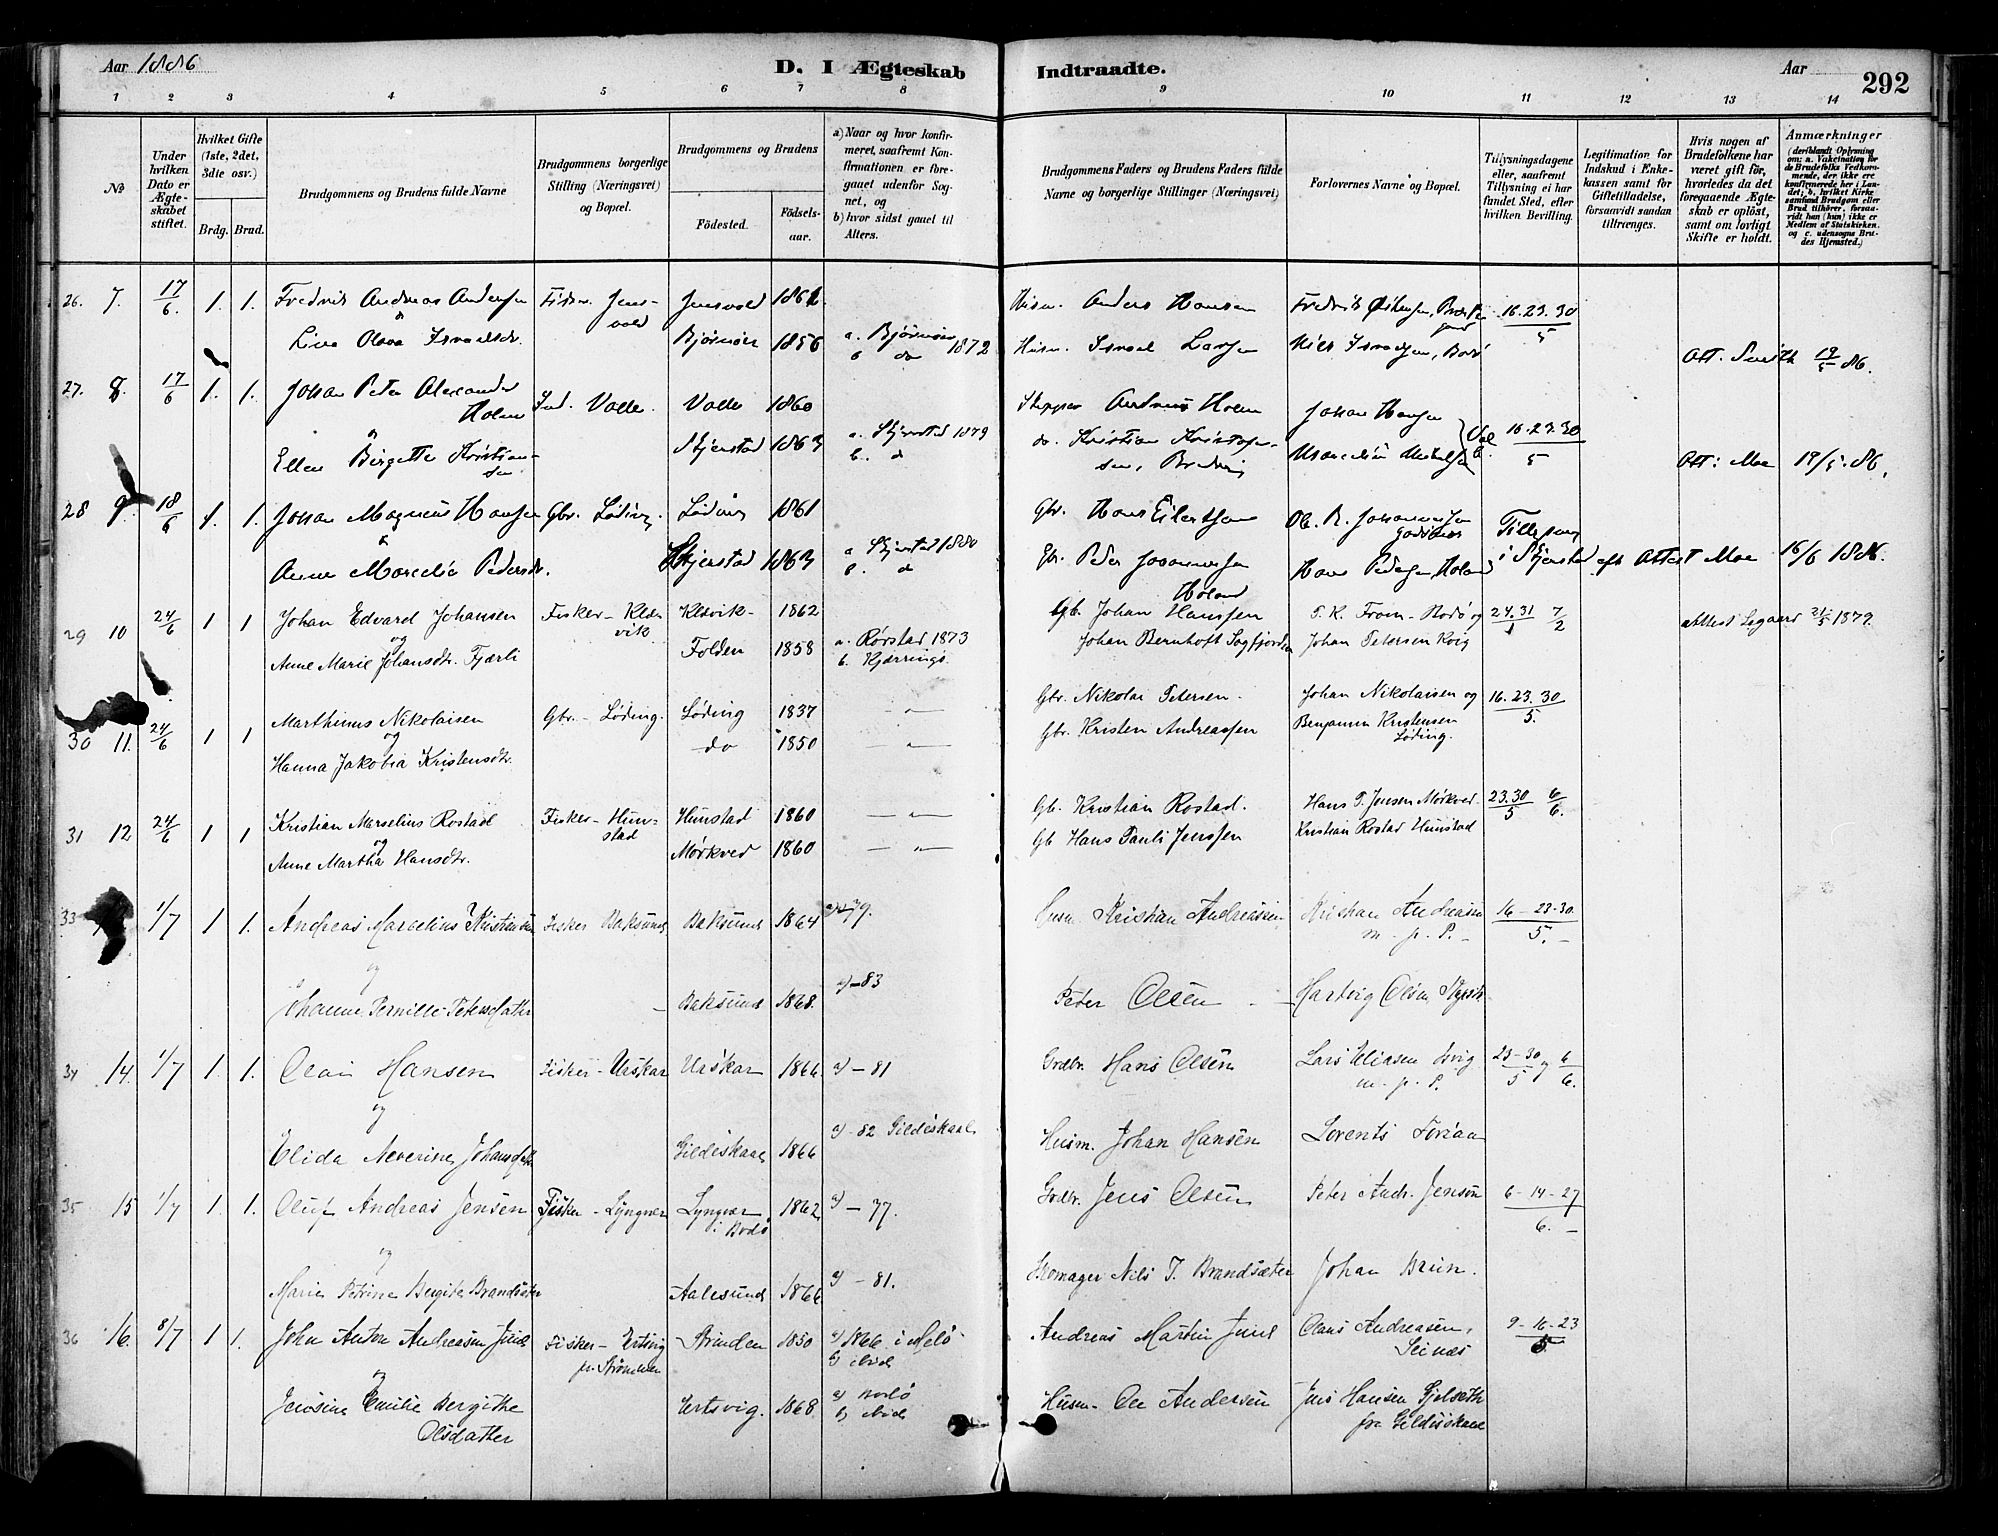 Aar 1886
D. I Ægteskab Indtraadte.
Aar 292
1 2 3 4 5 6 7 8 9 10 11 12 13 14
No
Under hvilken Dato er Ægteskabet stiftet.
Hvilket Gifte (1ste, 2det, 3die osv.)
Brdg. Brud.
Brudgommens og Brudens fulde Navne
Brudgommens borgerlige Stilling (Næringsvei) og Bopæl.
Brudgommens og Brudens
Fødested. Fødselsaar.
a) Naar og hvor konfirmeret, saafremt Konfirmationen er foregaaet udenfor Sognet, og
b) hvor sidst gaaet til Alters.
Brudgommens Faders og Brudens Faders fulde Navne og borgerlige Stillinger (Næringsvei)
Forlovernes Navne og Bopæl.
Tillysningsdagene eller, saafremt Tillysning ei har fundet Sted, efter hvilken Bevilling.
Legitimation for Indskud i Enkekassen samt for Giftetilladelse, forsaavidt saadan tiltrænges.
Hvis nogen af Brudefolkene har været gift før, hvorledes da det foregaaende Ægteskab er opløst, samt om lovligt Skifte er holdt.
Anmærkninger (deriblandt Oplysning om: a. Vakcination for de Brudefolks Vedkommende, der ikke ere konfirmerede her i Landet; b. hvilket Kirkesamfund Brudgom eller Brud tilhører, forsaavidt han (hun) ikke er Medlem af Statskirken, og c. udensogns Brudes Hjemsted.)
26. 7. 17/6. 1. 1. Fredrik Andreas Andersen Fisker Jensvold Jensvold 1861 Husm. Anders Hansen 16.23.30/5
Lina Olava Israelsdr. Bjørnør 1856 a. Bjørnør 1872 b. do Husm. Israel Larsen Nils Israelsen, Bodø Att. Smith 19/5 86.
27. 8. 17/6 1. 1. Johan Peter Alexander Holm Ind. Valle. Valle 1860 Skipper Andreas Holm Johan Hansen 16.23.30/5
Ellen Birgitte Kristiansen Skjerstad 1863 a. Skjerstad 1879 b. d do. Kristian Kristofersen, Att: Moe 19/5.86.
28 9. 18/6 1. 1. Johan Magnus Hansen Gbr. Løding. Løding 1861 Gbr. Hans Eilertsen Ol. R. Johannessen
Anne Marcelie Pedersdr. Skjerstad 1863 a. Skjerstad 1880 b. d Gbr. Peder Johannessen Høland Hans Pedersen, Høland Tillysning i Skjerstad eft Attest Moe 16/6 1886.
29 10 24/6 1 1 Johan Edvard Johansen Fisker – Klevvik Klevvik – 1862 Gb. Johan Hanssen P. R. From – Bodø og 24.31/1 7/2 Attest 21/5 1879.
og
Anne Marie Johansdtr. Fjærli Folden 1858 a. Rørstad 1873 b. Kjærrings. Johan Bernhoft Sagfjorden Johan Petersen
30 11. 24/6 1 1 Marthinus Nikolaisen Gbr. – Løding. Løding 1837 – „ – Gbr. Nikolai Petersen. Johan Nikolaisen og 16.23.30/5.
og
Hanna Jakobia Kristensdtr. do 1850 – „ – Gbr. Kristen Andreassen Benjamin Kristensen Løding.
31 12 24/6 1 1 Kristian Marselius Rostad Fisker – Hunstad Hunstad 1860 – „ – Gb. Kristian Rostad. Hans P. Jensen Mørkved. 23.30/5 6/6.
og
Anne Martha Hansdtr. Mørkved 1860 – „ – Gb Hans Pauli Jenssen Kristian Rostad Hunstad
33 1/7 1 1. Andreas Marcelius Kristiansen Fisker Baksund Baksund 1864 79. Husm. Kristian Andreassen Kristian Andreasen m. p. P. 16 – 23-30/5.
og
Hanna Pernille Petersdatter – Baksund 1868. a) – 83 Peter Olsen Hartvig Olsen
34 14. 1/7 1. 1. Olai Hansen Fisker – Urskar Urskar 1866 a) – 81 Grdbr. Hans Olsen Lars Eliasen m. p. P. 23-30/5 og 6/6.
og
Elida Neverine Johansdatter Gildeskaal 1866 a) – 82 Gildeskaal Husm. Johan Hansen Lorents
35 15 1/7 1. 1. Oluf Andreas Jensen Fisker – Lyngvær Lyngvær i Bodø 1862 a) – 77. Grdbr. Jens Olsen Peter Andr. Jensen 6-14-27/6.
og
Marie Petrine Bergitte Brandsæter Aalesund 1866 a) – 81. Skomager Nils J. Brandsæter Johan Brun.
36 16. 8/7 1 1. John Anton Andreasen Juul Fisker – Ertsvig Strinden 1850 a) 1866 i Melø b) ibid Andreas Martin Juul Claus Andreasen, Seinæs 9-16-23/5.
og
Jensine Emilie Bergithe Olsdatter Ertsvig. 1868 a) Bodø b) ibid Husm. Ole Andersen Jens Hansen Gjelseth fra Gildeskaal